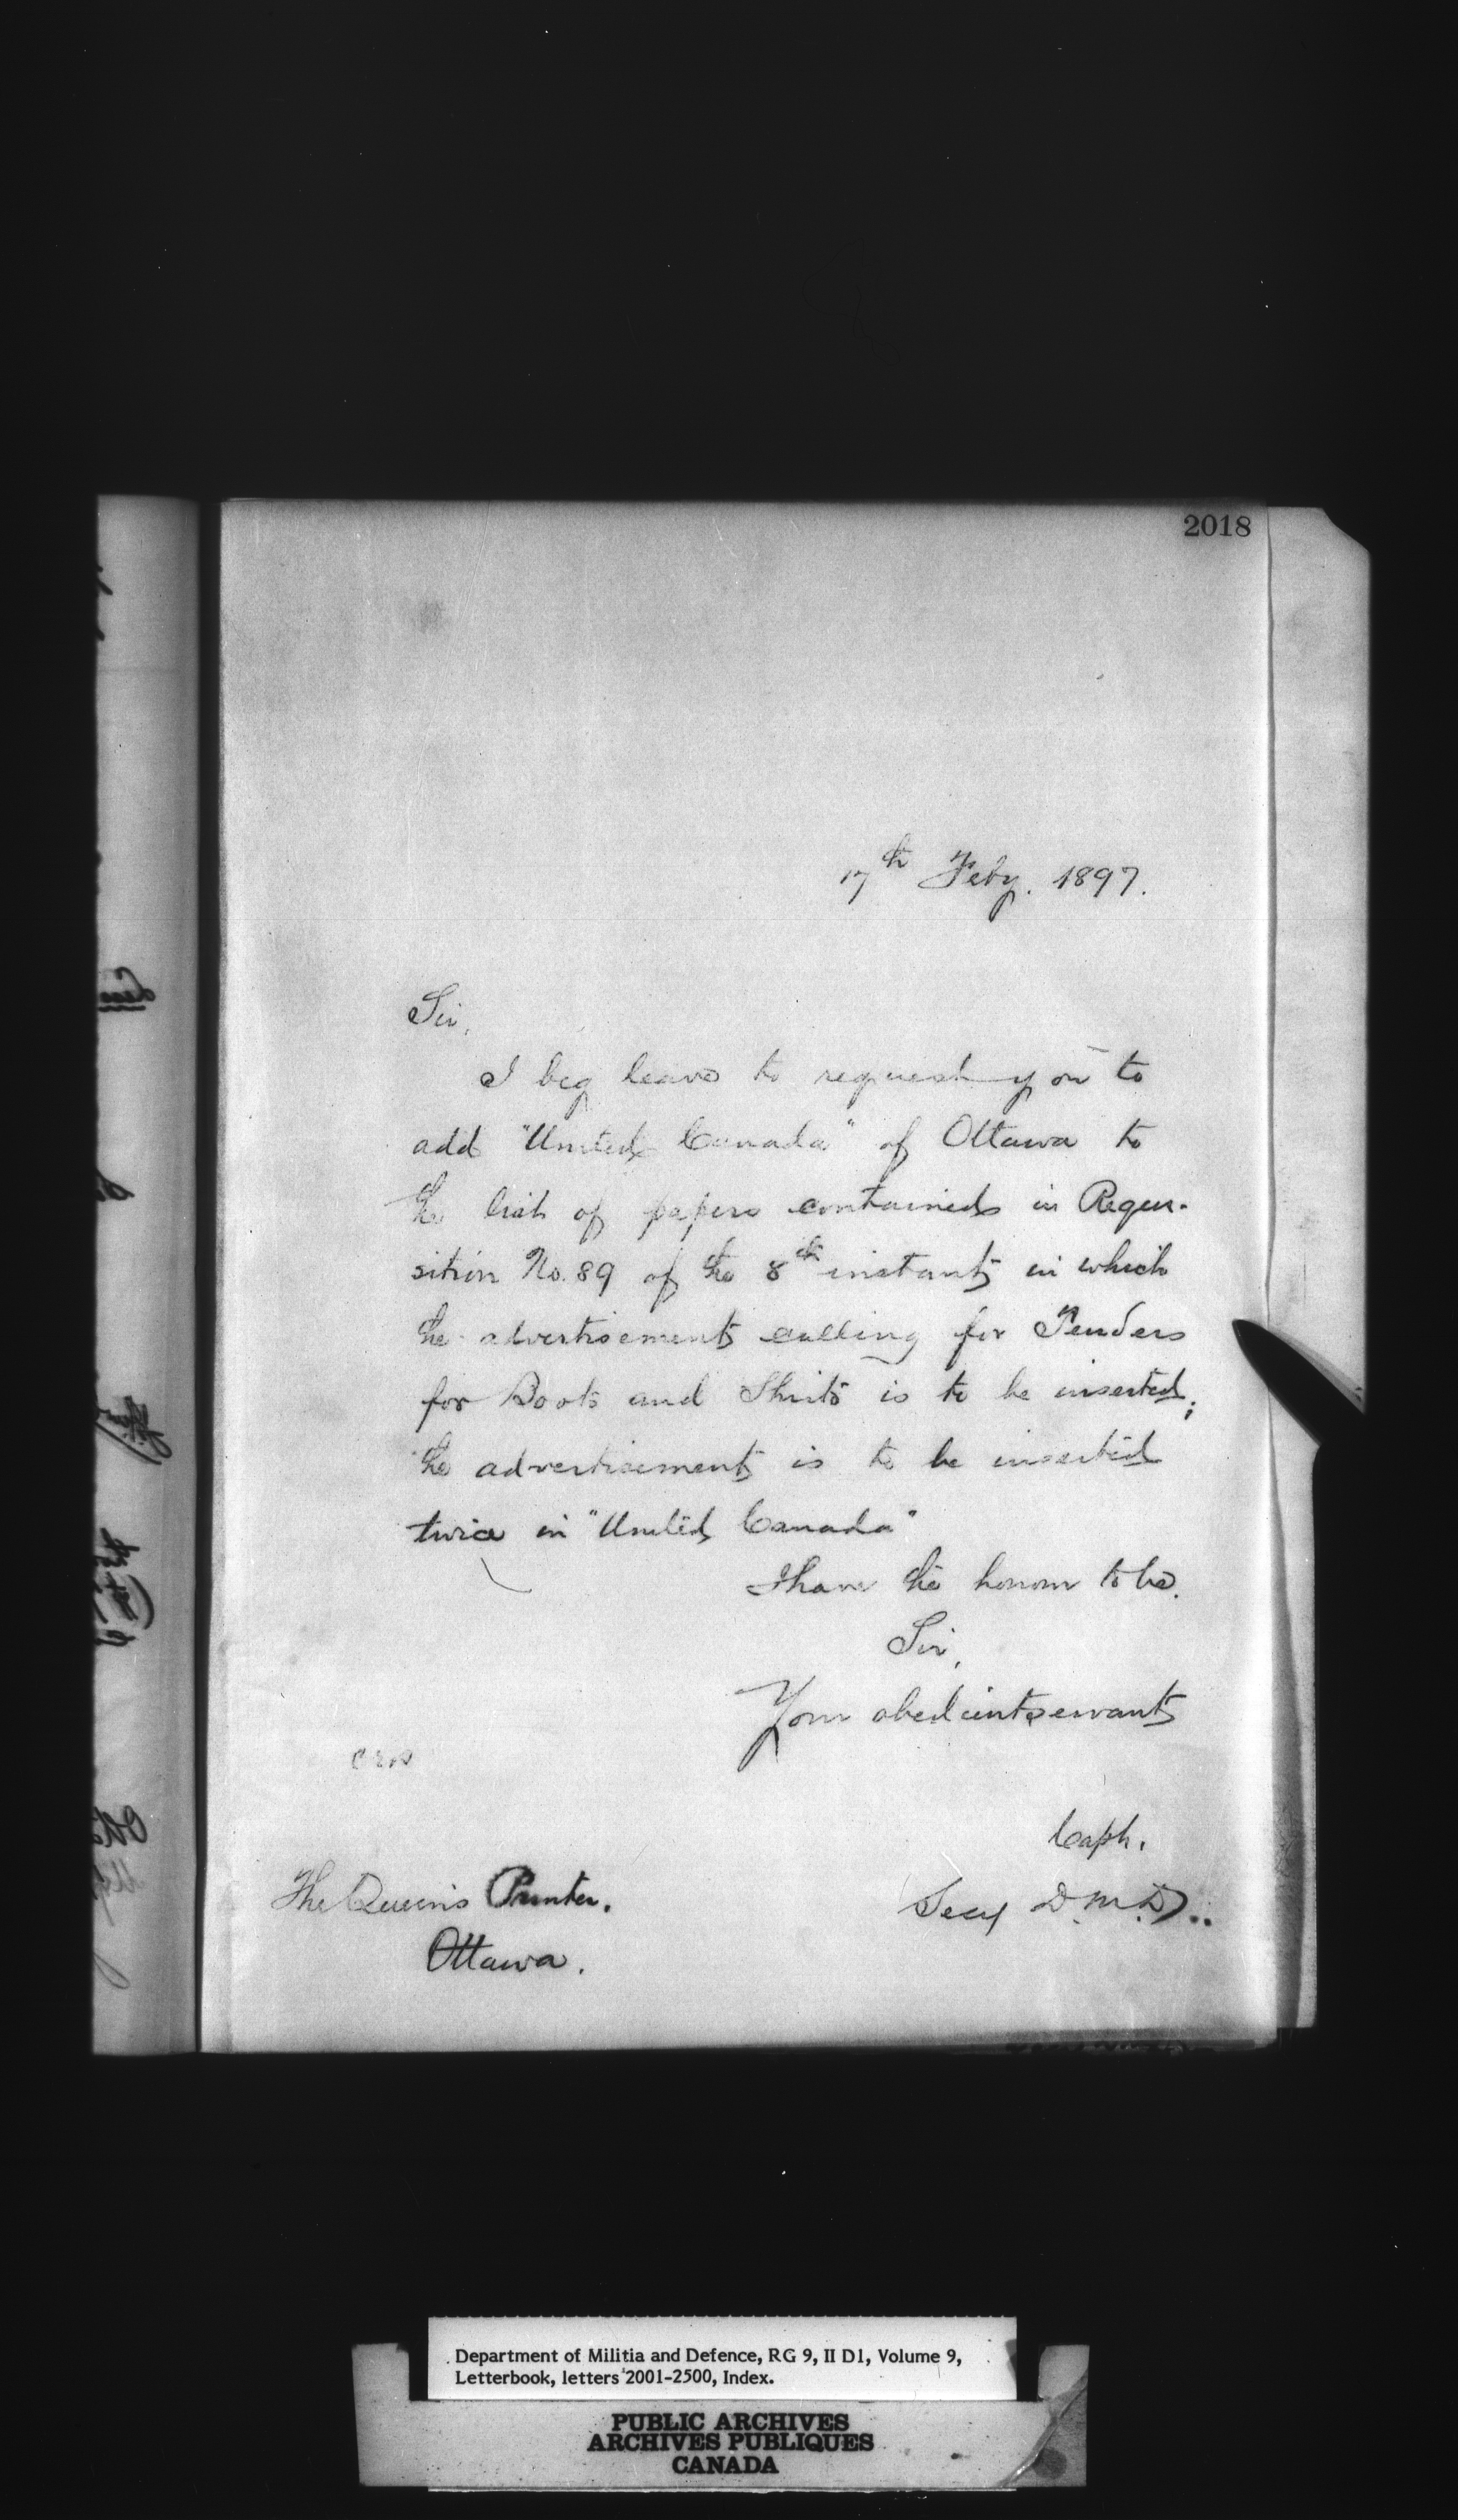 2018
17th Feby. 1897.
Sir,
I beg leave to request you to
add "United Canada" of Ottawa to
the list of papers contained in Requi-
sition No. 89 of the 8th instant in which
the advertisement calling for Tenders
for Boots and Shirts is to be inserted;
the advertisement is to be inserted
twice in "United Canada"
I have the honour to be.
Sir,
Your obedient servant
Capt.
Secy D.M.D..
The Queen's Printer.
Ottawa.
Department of Militia and Defence, RG 9, II D1, Volume 9,
Letterbook, letters 2001-2500, Index.
PUBLIC ARCHIVES
ARCHIVES PUBLIQUES
CANADA